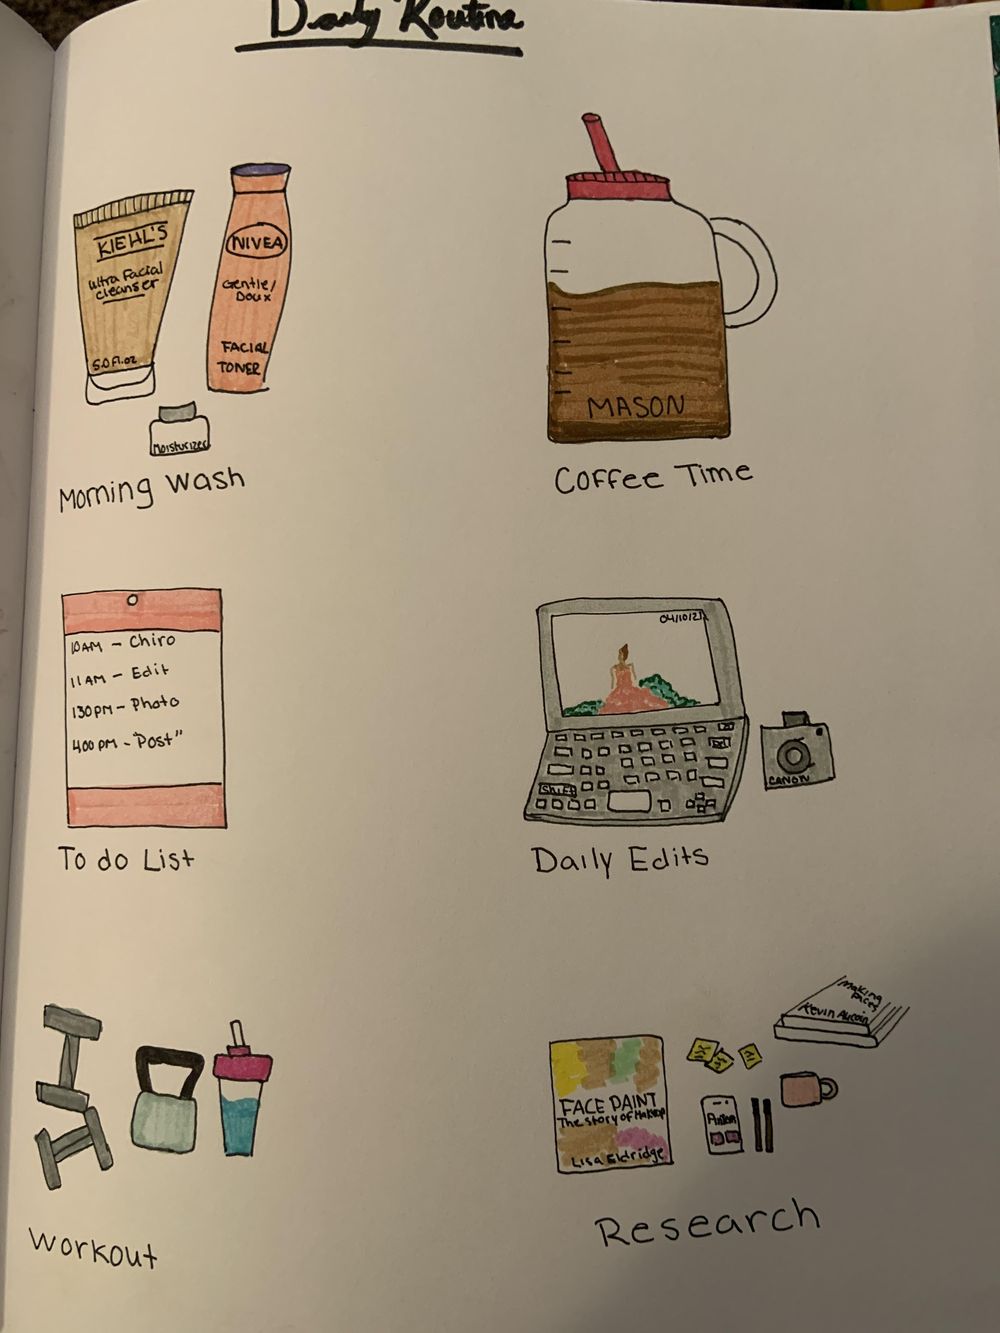 Daily Routine
KIEHL'S
ultra Facial
cleanser
5.0 Fl.oz
NIVEA
Gentle/
Doux
FACIAL
TONER
Moisturizer
Morning Wash
MASON
Coffee Time
10AM - Chiro
11AM - Edit
130PM - Photo
400PM - "Post"
To do List
04/10/21
Shift
CANON
Daily Edits
Workout
Making
Faces
Kevin Aucoin
FACE PAINT
The Story of Makeup
Lisa Eldridge
Research